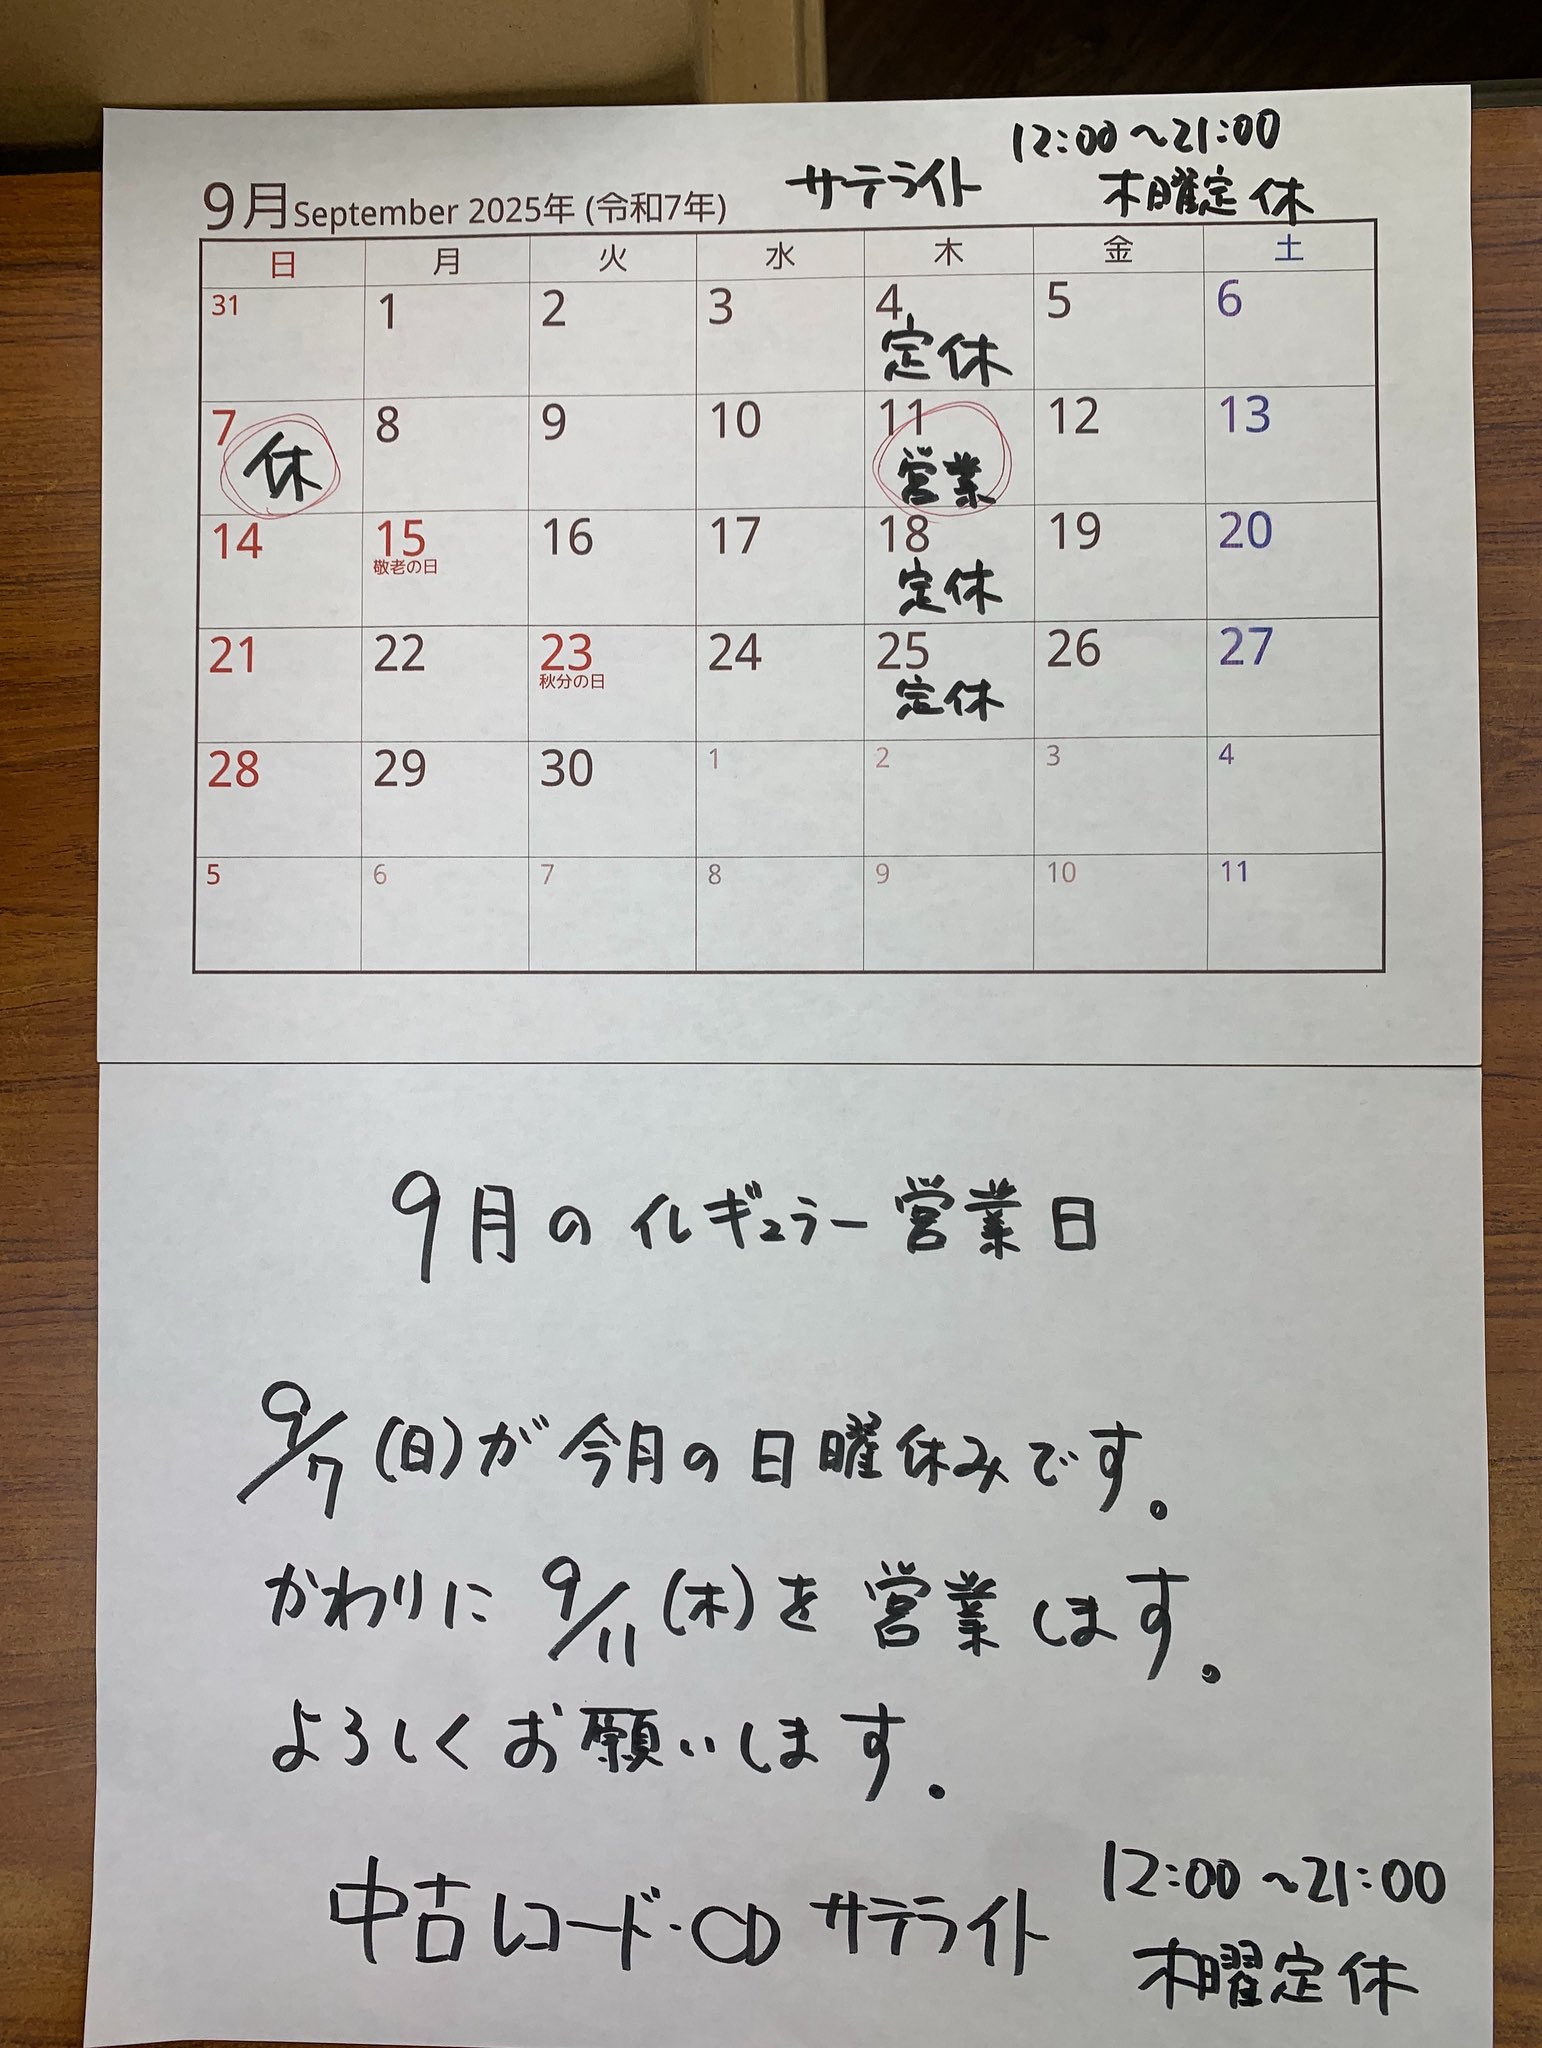 12:00〜21:00
サテライト 木曜定休
9月 September 2025年 (令和7年)
日 月 火 水 木 金 土
31 1 2 3 4 5 6
定休
7 8 9 10 11 12 13
休 営業
14 15 16 17 18 19 20
敬老の日 定休
21 22 23 24 25 26 27
秋分の日 定休
28 29 30 1 2 3 4
5 6 7 8 9 10 11
9月のイレギュラー営業日
9/7(日)が今月の日曜休みです。
かわりに9/11(木)を営業します。
よろしくお願いします。
中古レコード・CD サテライト
12:00〜21:00
木曜定休